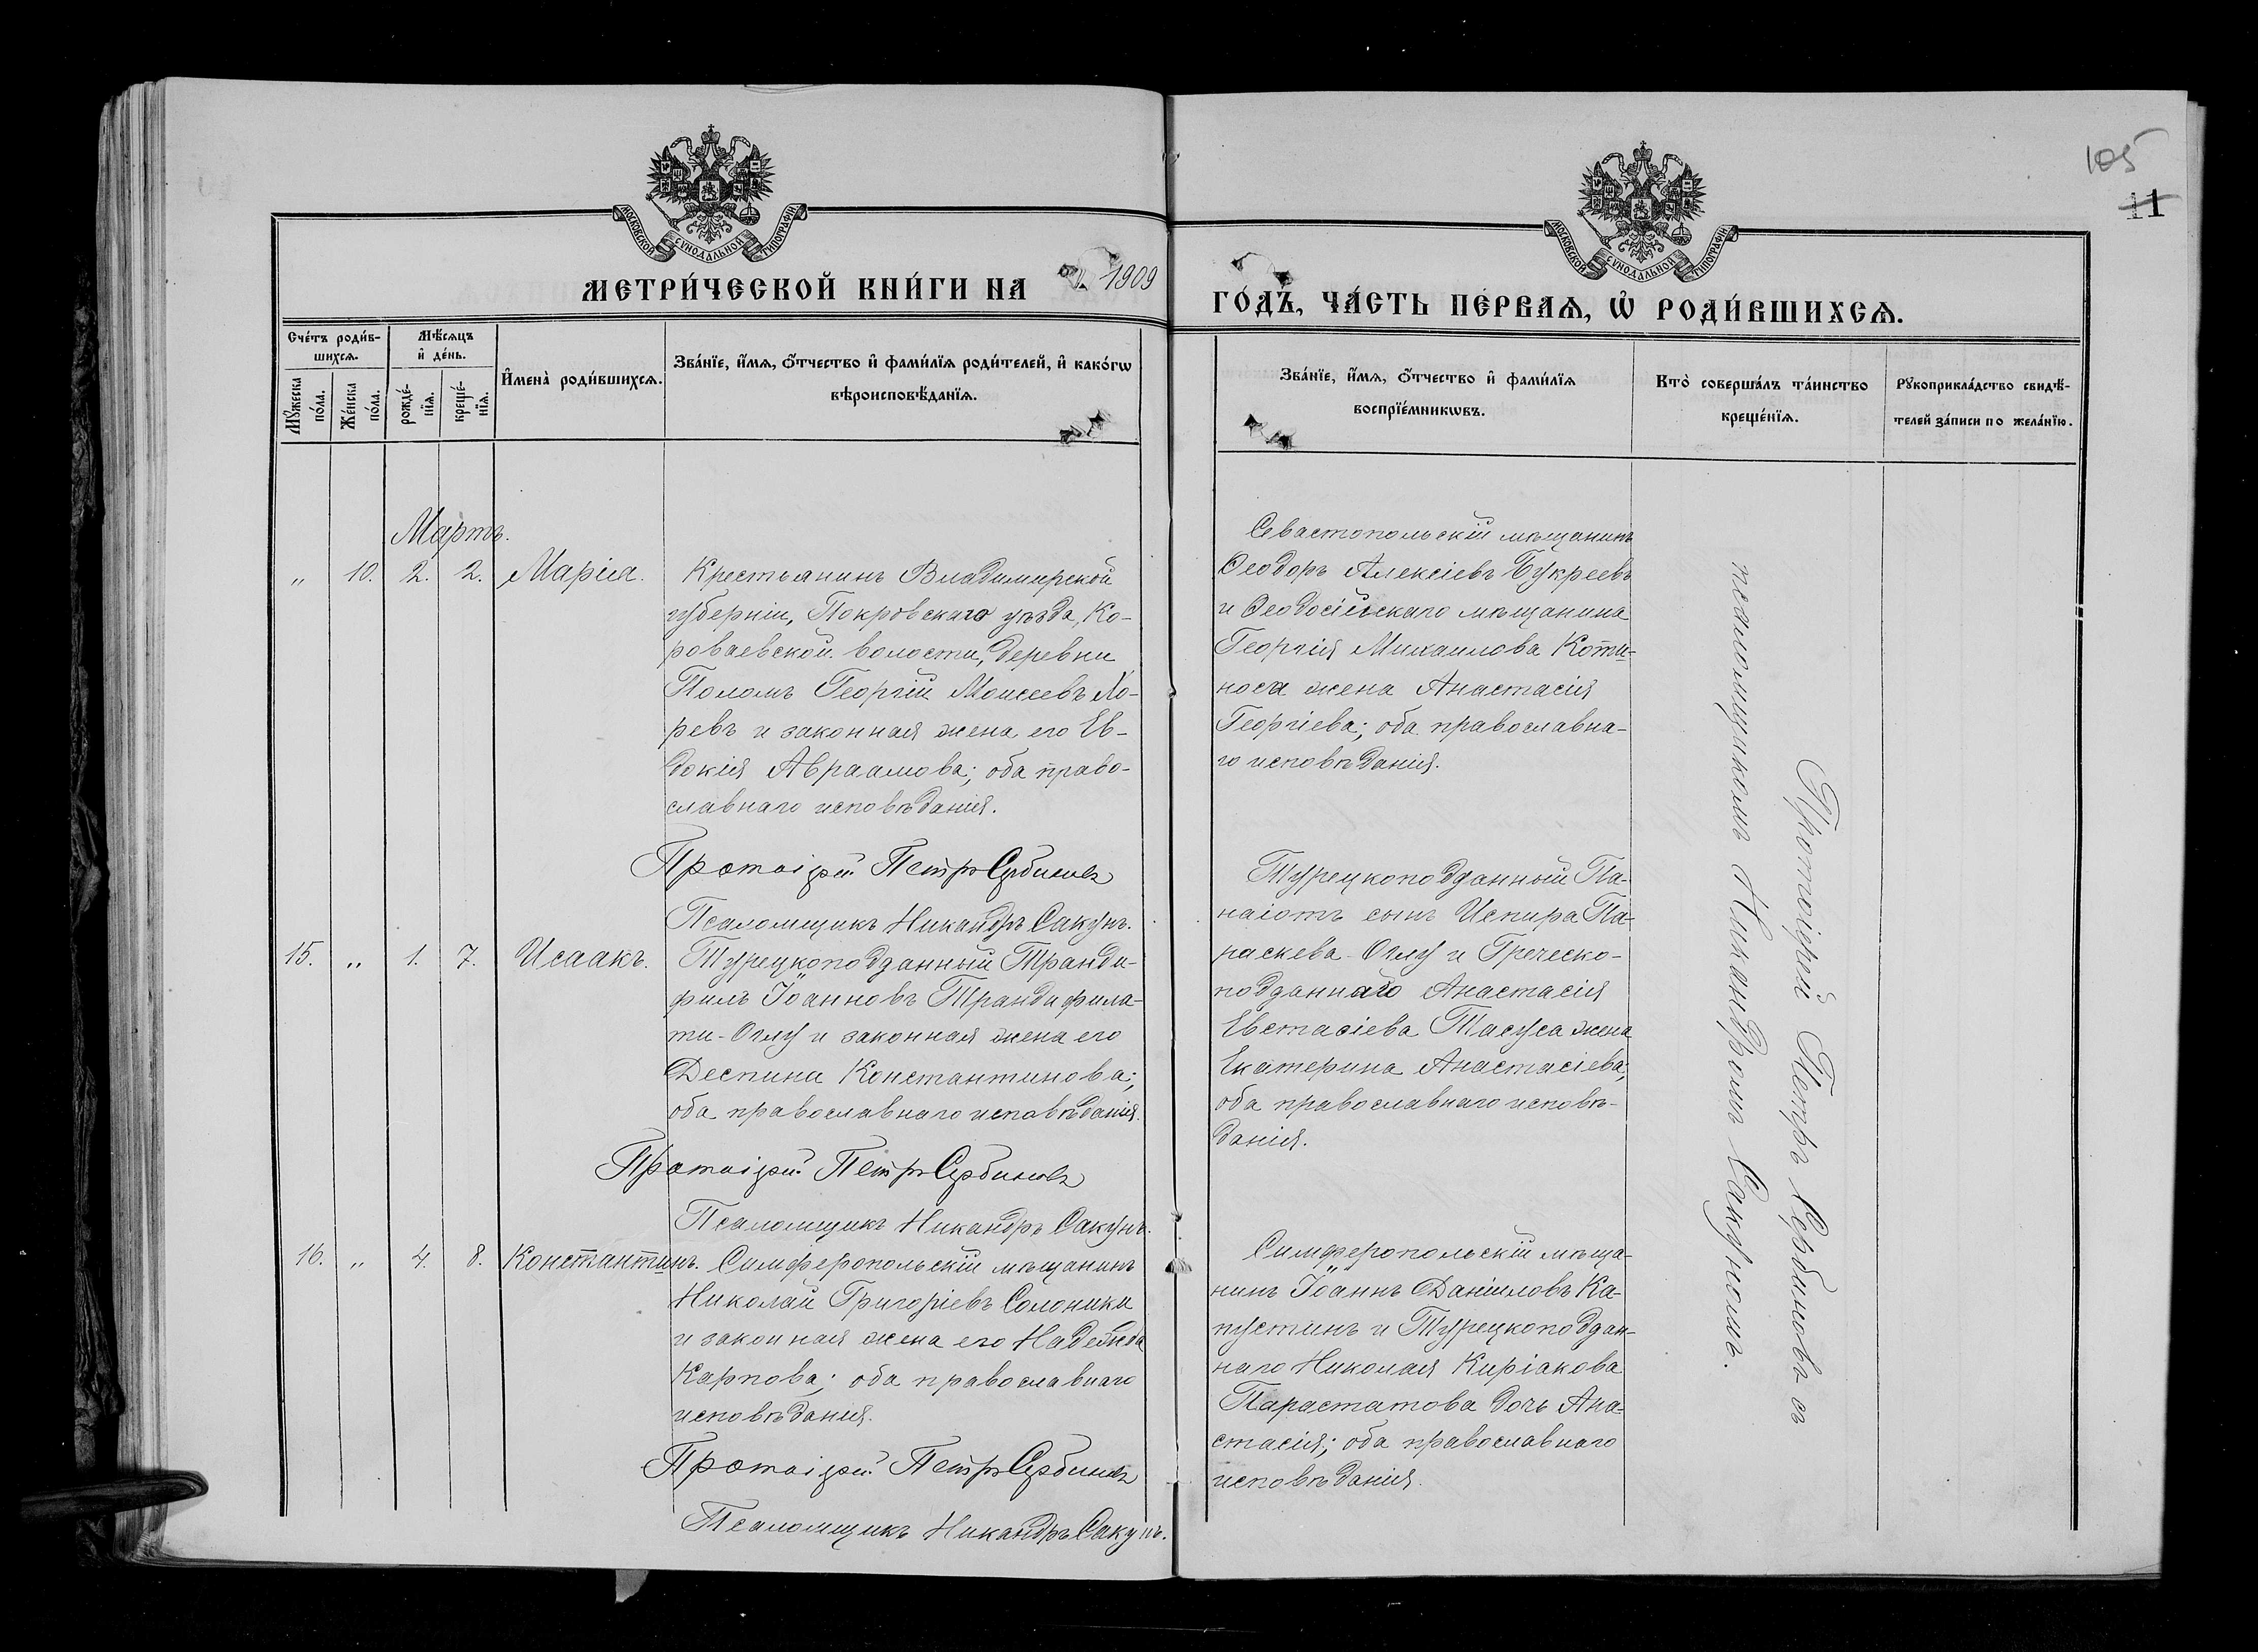 105
11
МОСКОВСКОЙ СѴНОДАЛЬНОЙ ТИПОГРАФІИ
МОСКОВСКОЙ СѴНОДАЛЬНОЙ ТИПОГРАФІИ
МЕТРИ́ЧЕСКОЙ КНИ́ГИ НА 1909
ГО́ДЪ, ЧА́СТЬ ПЕ́РВАѦ, Ѡ҆ РОДИ́ВШИХСѦ.
Сче́тъ роди́в-
шихсѧ.
Мꙋ́жеска
по́ла.
Же́нска
по́ла.
Мѣ́сѧцъ
и҆ де́нь.
рожде́-
нїѧ.
креще́-
нїѧ.
И҆мена̀ роди́вшихсѧ.
Зва́нїе, и҆́мѧ, ѻ҆́тчество и҆ фами́лїѧ роди́телей, и҆ како́гѡ
вѣроисповѣ́данїѧ.
Зва́нїе, и҆́мѧ, ѻ҆́тчество и҆ фами́лїѧ
воспрїе́мникѡвъ.
Кто̀ соверша́лъ та́инство
креще́нїѧ.
Рꙋкоприкла́дство свидѣ́-
телей за́писи по жела́нїю.
Мартъ.
„ 10. 2. 2. Марія.
Крестьянинъ Владимирской
губерніи, Покровскаго уѣзда, Ко-
роваевской волости, деревни
Поломъ Георгій Моисеевъ Хо-
ревъ и законная жена его Ев-
докія Авраамова; оба право-
славнаго исповѣданія.
Протоіерей Петръ Сербиновъ
Псаломщикъ Никандръ Сакунъ.
Севастопольскій мѣщанинъ
Ѳеодоръ Алексіевъ Букреевъ
и Ѳеодосійскаго мѣщанина
Георгія Михаилова Коти-
носа жена Анастасія
Георгіева; оба православна-
го исповѣданія.
15. „ 1. 7. Исаакъ.
Турецкоподданный Транди-
филъ Іоанновъ Трандифила-
ти-Оглу и законная жена его
Деспина Константинова;
оба православнаго исповѣданія.
Протоіерей Петръ Сербиновъ
Псаломщикъ Никандръ Сакунъ.
Турецкоподданный Па-
наіотъ сынъ Испира Па-
раскева-Оглу и Греческо-
подданнаго Анастасія
Евстасіева Тасуса жена
Екатерина Анастасіева;
оба православнаго исповѣ-
данія.
16. „ 4. 8. Константинъ.
Симферопольскій мѣщанинъ
Николай Григоріевъ Солоники
и законная жена его Надежда
Карпова; оба православнаго
исповѣданія.
Протоіерей Петръ Сербиновъ
Псаломщикъ Никандръ Сакунъ.
Симферопольскій мѣща-
нинъ Іоаннъ Даніиловъ Ка-
пустинъ и Турецкоподдан-
наго Николая Киріакова
Парастатова дочь Ана-
стасія; оба православнаго
исповѣданія.
Протоіерей Петръ Сербиновъ съ
псаломщикомъ Никандромъ Сакуномъ.